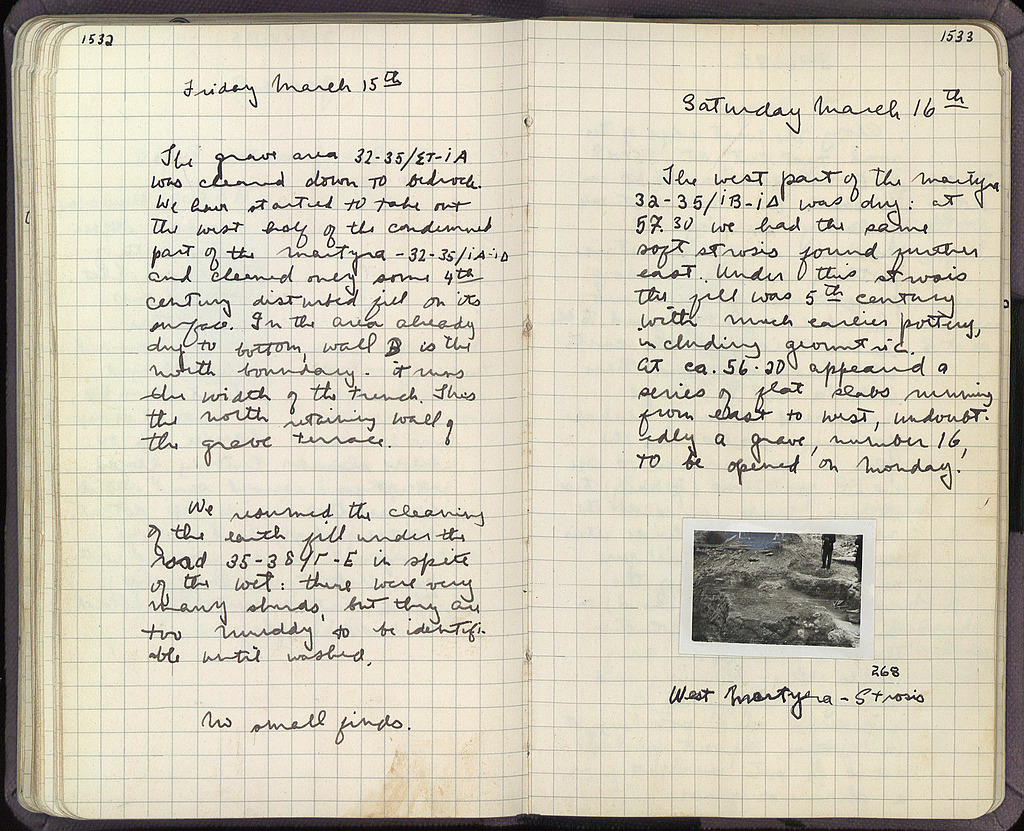 1532
Friday March 15th
The grave area 32-35/ΣΤ-ιΑ
was cleaned down to bedrock.
We have started to take out
the west half of the condemned
part of the martyra - 32-35/ιΑ-ιΔ
and cleaned only some 4th
century disturbed fill on its
surface. In the area already
dug to bottom, wall B is the
north boundary. it runs
the width of the trench. This
the north retaining wall of
the grave terrace.
We resumed the cleaning
of the earth fill under the
road 35-38/Γ-Ε in spite
of the wet: there were very
many sherds, but they are
too muddy to be identifi-
able until washed.
No small finds.
1533
Saturday March 16th
The west part of the martyra
32-35/ιΒ-ιΔ was dug: at
57.30 we had the same
soft strosis found further
east. Under this strosis
the fill was 5th century
with much earlier pottery,
including geometric.
At ca. 56.20 appeared a
series of flat slabs running
from east to west, undoubt-
edly a grave, number 16,
to be opened on Monday.
268
West Martyra - Strosis